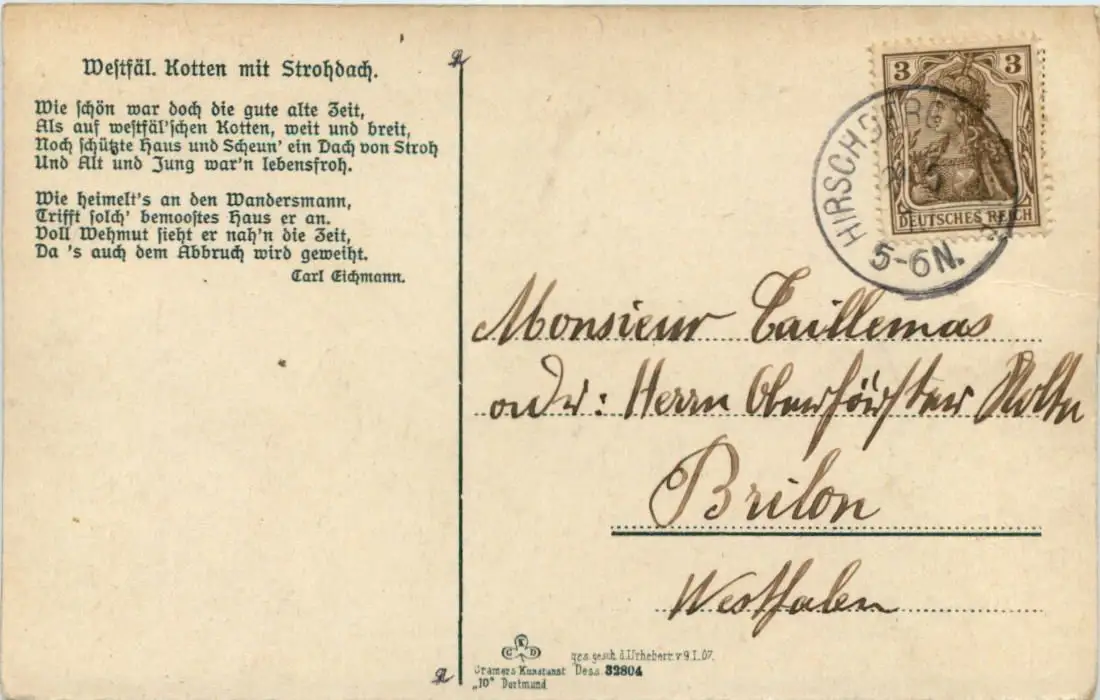 Westfäl. Kotten mit Strohdach.
Wie schön war doch die gute alte Zeit,
Als auf westfäl'schen Kotten, weit und breit,
Noch schützte Haus und Scheun' ein Dach von Stroh
Und Alt und Jung war'n lebensfroh.
Wie heimelt's an den Wandersmann,
Trifft solch' bemoostes Haus er an.
Voll Wehmut sieht er nah'n die Zeit,
Da 's auch dem Abbruch wird geweiht.
Carl Eichmann.
3 3
DEUTSCHES REICH
HIRSCHBERG
5-6N.
Monsieur Taillemas
oder: Herrn Oberförster Nolte
Brilon
Westfalen
CKD
Cramers Kunstanst
„10" Dortmund
ges. gesch. d. Urheberr. v 9.1.07.
Dess. 32804